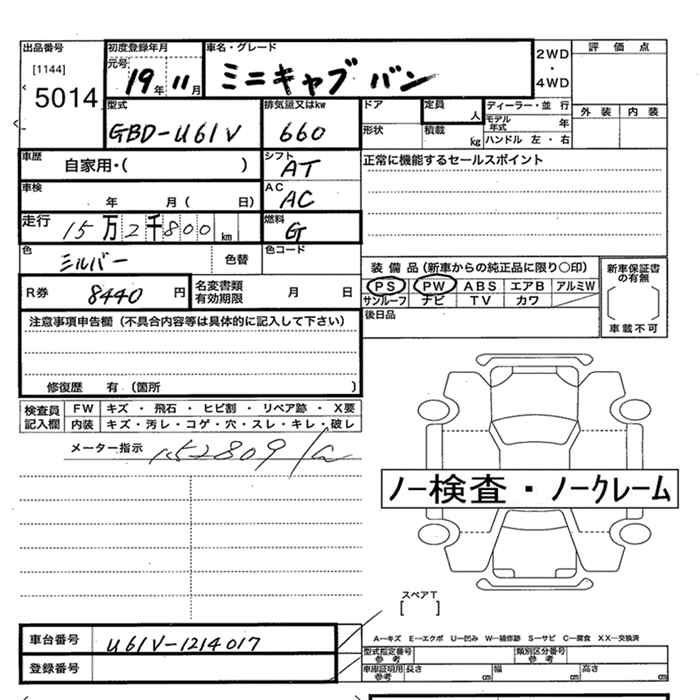 出品番号 初度登録年月 車名・グレード 2WD・4WD 評価点
[1144] 元号 19年 11月 ミニキャブ バン
5014
型式 排気量又はkw ドア 定員 人 ディーラー・並行 外装 内装
GBD-U61V 660 形状 積載 kg モデル年式 年
ハンドル 左・右
車歴 自家用・( ) シフト AT 正常に機能するセールスポイント
車検 年 月( 日) AC AC
走行 15万2千800km 燃料 G
色 シルバー 色替 色コード
装備品(新車からの純正品に限り○印) 新車保証書の有無
R券 8440円 名変書類有効期限 月 日 PS PW ABS エアB アルミW
サンルーフ ナビ TV カワ
後日品 車載不可
注意事項申告欄(不具合内容等は具体的に記入して下さい)
修復歴 有(箇所 )
検査員記入欄 FW キズ・飛石・ヒビ割・リペア跡・X要
内装 キズ・汚レ・コゲ・穴・スレ・キレ・破レ
メーター指示 152809
ノー検査・ノークレーム
スペアT
[ ]
車台番号 U61V-1214017
A―キズ E―エクボ U―凹み W―補修跡 S―サビ C―腐食 XX―交換済
型式指定番号参考 類別区分番号参考
登録番号 車庫証明用参考 長さ cm 幅 cm 高さ cm